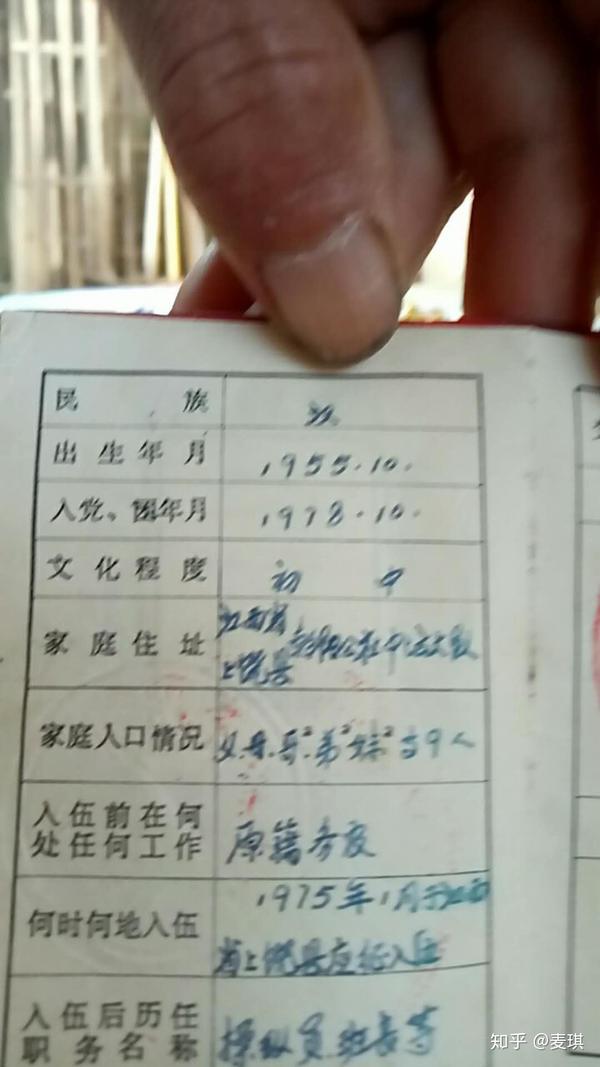 民族 汉
出生年月 1955.10.
入党、团年月 1978.10.
文化程度 初中
家庭住址 江西省
上饶县
家庭人口情况 父.母.哥²弟²妹²共9人
入伍前在何
处任何工作 原籍务农
何时何地入伍 1975年1月于江西
省上饶县应征入伍
入伍后历任
职务名称 操纵员.班长等
知乎 @麦琪